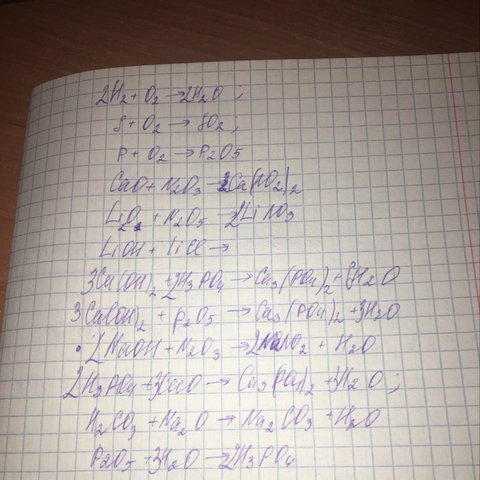 2H₂ + O₂ → 2H₂O ;
S + O₂ → SO₂ ;
P + O₂ → P₂O₅
CaO + N₂O₃ → Ca(NO₂)₂
Li₂O + N₂O₅ → 2LiNO₃
LiOH + LiCl →
3Ca(OH)₂ + 2H₃PO₄ → Ca₃(PO₄)₂ + 6H₂O
3Ca(OH)₂ + P₂O₅ → Ca₃(PO₄)₂ + 3H₂O
• 2NaOH + N₂O₃ → 2NaNO₂ + H₂O
2H₃PO₄ + 3CaO → Ca₃(PO₄)₂ + 3H₂O ;
H₂CO₃ + Na₂O → Na₂CO₃ + H₂O
P₂O₅ + 3H₂O → 2H₃PO₄